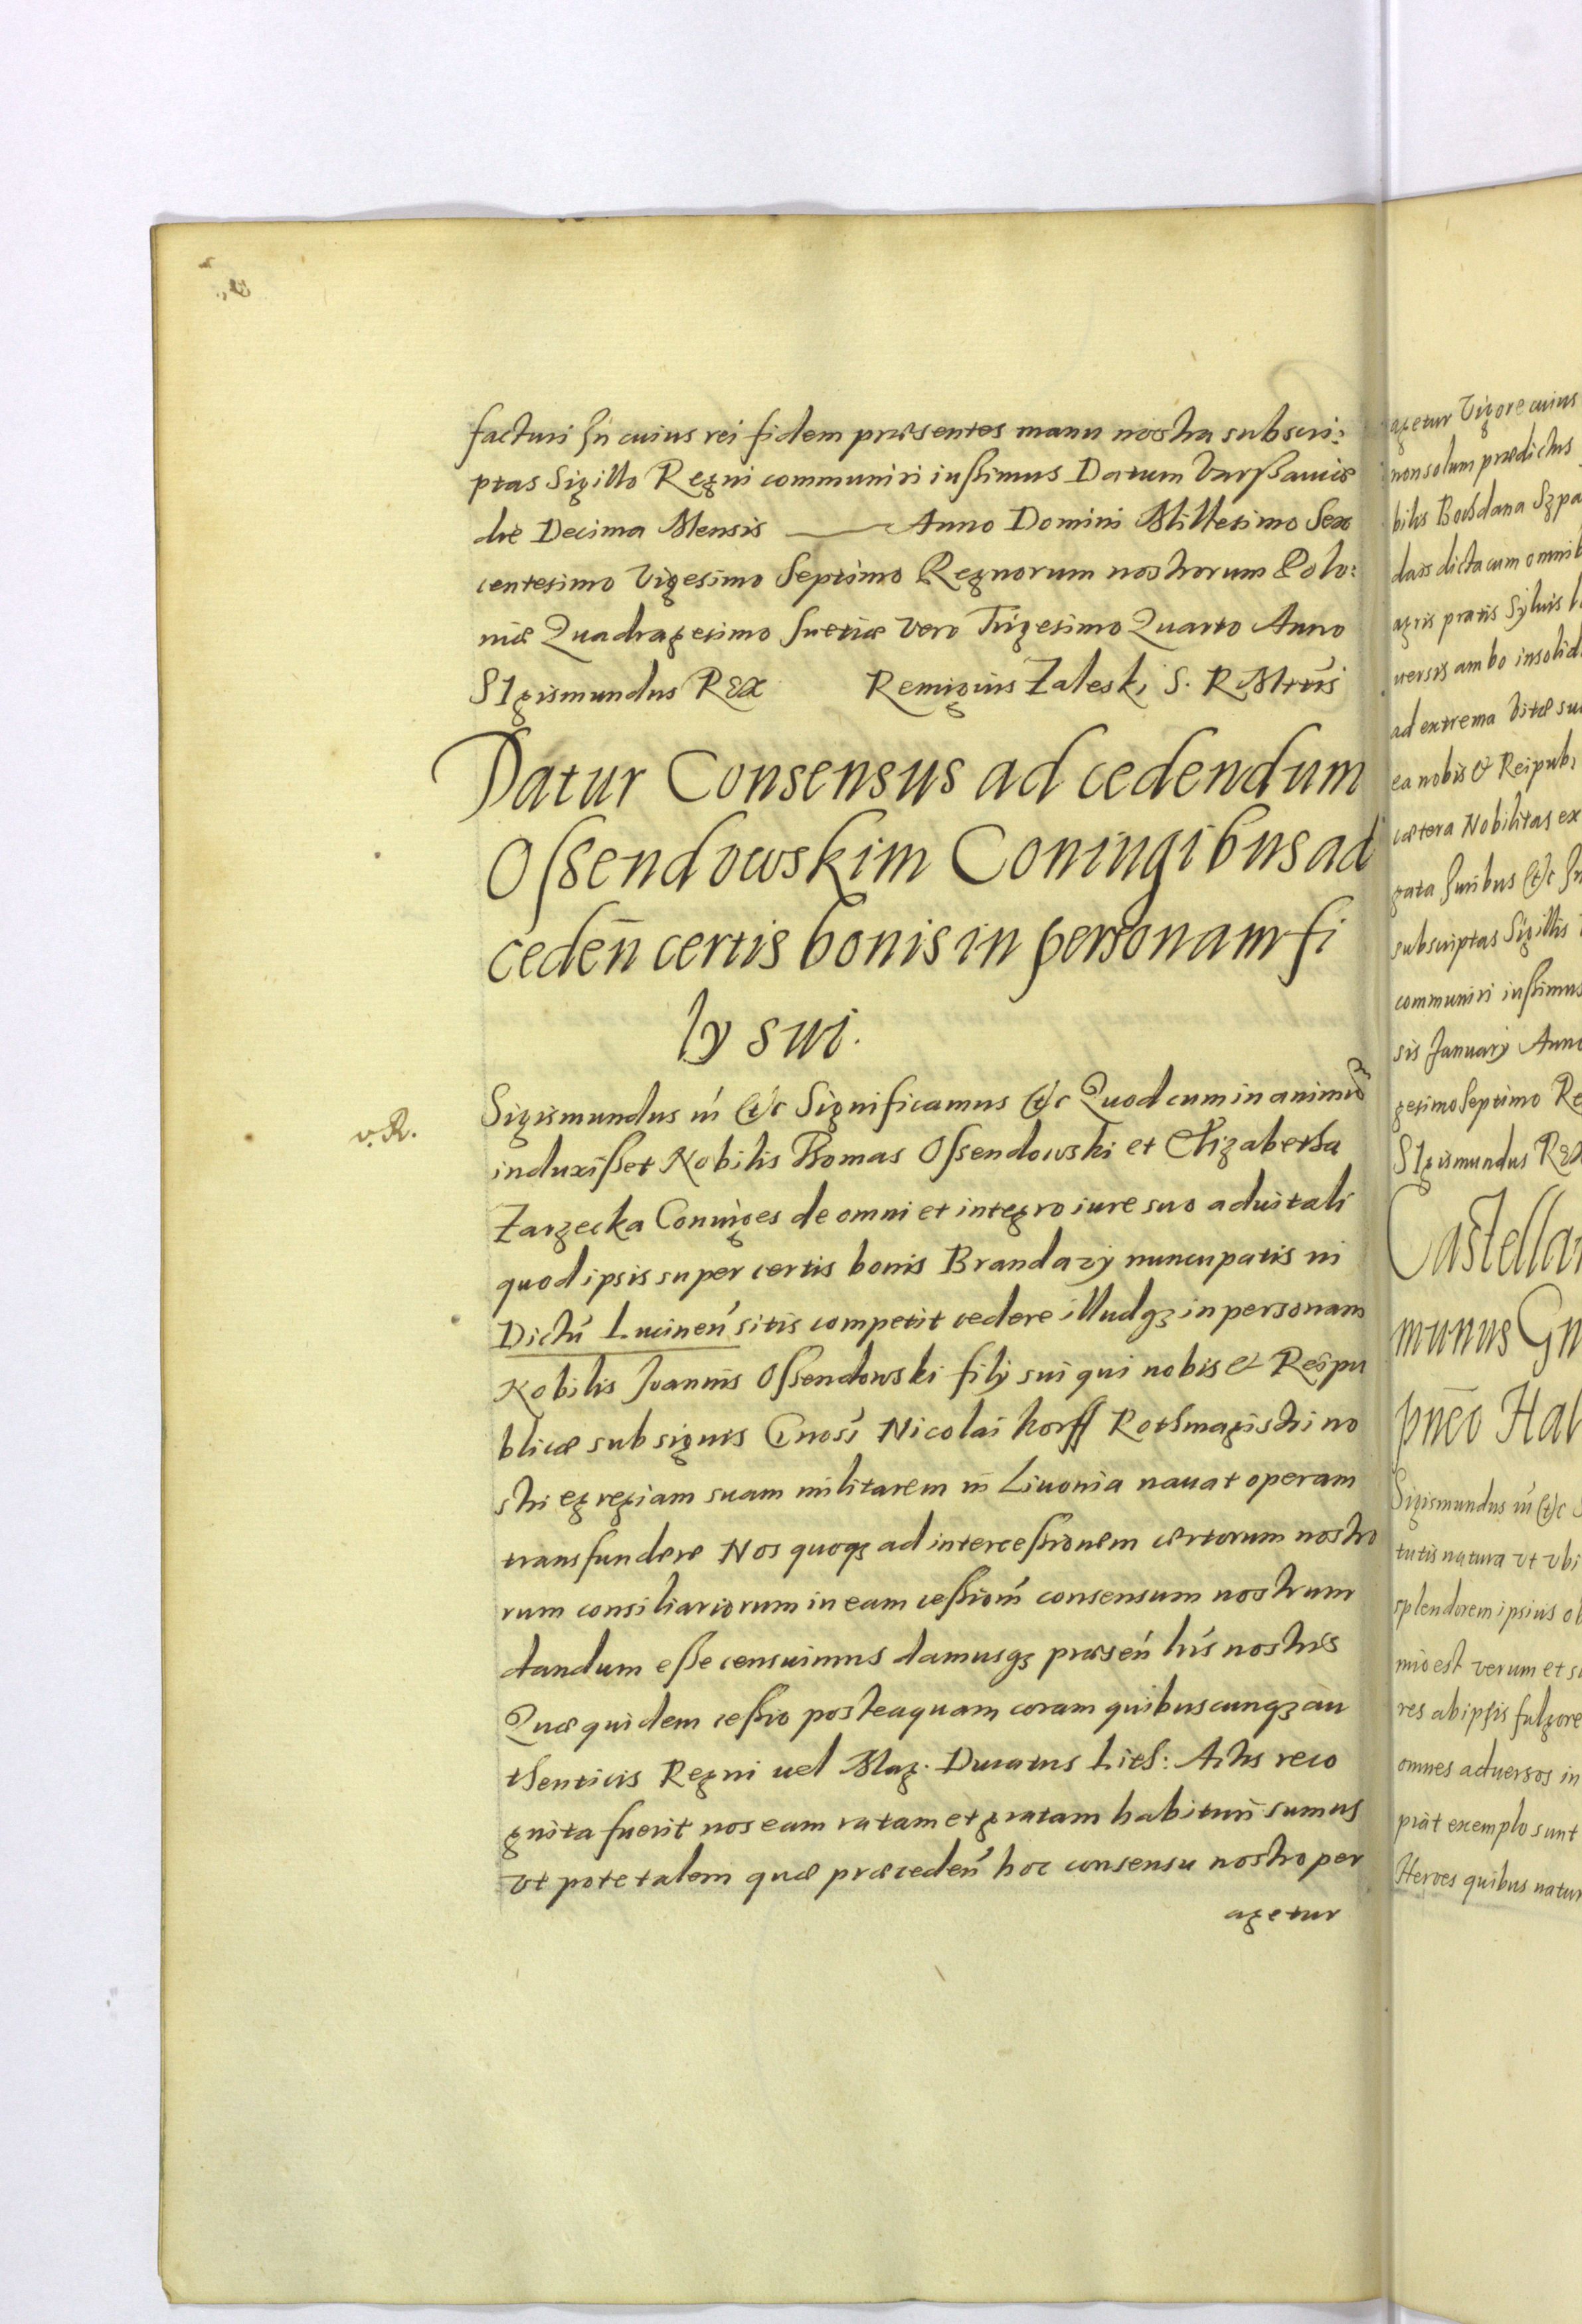 facturi In cuius rei fidem præsentes manu nostra subscri:
ptas Sigillo Regni communiri iussimus Datum Varssaviæ
die Decima Mensis —— Anno Domini Millesimo Sex
centesimo Vigesimo Septimo Regnorum nostrorum Polo:
niæ Quadragesimo Suetiæ vero Trigesimo Quarto Anno
SIgismundus REX Remigius Zaleski S. R Mtis
Datur Consensus ad cedendum
Ossendowskim Coniugibus ad
ceden̄ certis bonis in personam fi
ly sui.
v. R.
Sigismundus in̄ &c Significamus &c Quod cum in animū
induxisset Nobilis Thomas Ossendowski et Elizabetha
Zarzecka Coniuges de omni et integro iure suo aduitali
quod ipsis super certis bonis Brandazy nuncupatis in
Dictū Lucinen̄ sitis competit cedere illudqꝫ in personam
Nobilis Joannis Ossendowski fily sui qui nobis & Reipu
blicæ sub signis Gnosi Nicolai korff Rothmagistri no
stri egregiam suam militarem in Livonia navat operam
transfundere Nos quoqꝫ ad intercessionem certorum nostro
rum consiliariorum in eam cessionē consensum nostrum
dandum esse censuimus damusqꝫ præsen̄ lrīs nostris
Quæ quidem cessio posteaquam coram quibuscunqꝫ au
thenticis Regni uel Mag. Ducatus Lith: Actis reco
gnita fuerit nos eam ratam et gratam habituri sumus
vt pote talem quæ præceden̄ hoc consensu nostro per
agetur
agetur Vigore cuius
non solum prædictus
bilis Bohdana Szpa
dass dicta cum omnib
agris pratis Sylvis l
uersis ambo insolid
ad extrema vitæ su
ea nobis & Reipub:
cætera Nobilitas ex
gata Iuribus &c In
subscriptas Sigillis
communiri iussimus
sis January Anno
gesimo Septimo Re
SIgismundus REX
Castellan
munus Gn
pnēo Hal
Sigismundus in̄ &c
tutis natura vt vbi
splendorem ipsius ob
mio est verum et si
res ab ipsis fulgore
omnes aduersos in
piāt exemplo sunt
Heroes quibus natur